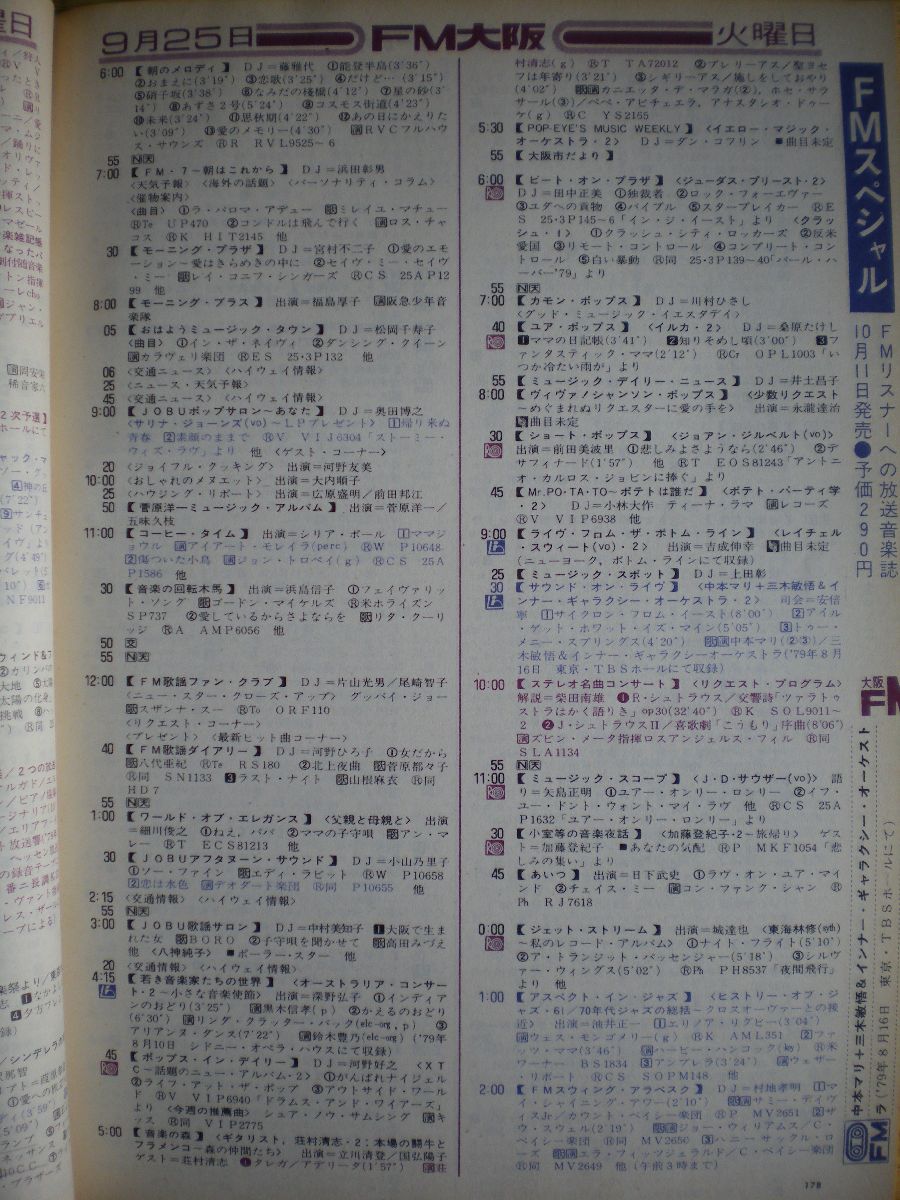 9月25日
FM大阪
火曜日
6:00 【朝のメロディ】 DJ=藤雅代 ①能登半島(3'36")
②おまえに(3'19") ③恋歌(3'25") ④だけど…(3'15")
⑤硝子坂(3'38") ⑥なみだの桟橋(4'12") ⑦星の砂(3'
14") ⑧あずさ2号(5'24") ⑨コスモス街道(4'23")
⑩未来(3'24") ⑪思秋期(4'22") ⑫あの日にかえりた
い(3'09") ⑬愛のメモリー(4'30") 演RVCフルハウ
ス・サウンズ ⓇR RVL9525〜6
55 N天
7:00 【FM・7〜朝はこれから】 DJ=浜田彰男
<天気予報> <海外の話題> <パーソナリティ・コラム>
<催物案内>
<曲目> ①ラ・パロマ・アデュー 歌ミレイユ・マチュー
ⓇTe UP470 ②コンドルは飛んで行く 演ロス・チャ
コス ⓇK HIT2145 他
30 【モーニング・プラザ】 DJ=宮村不二子 ①愛のエモ
ーション〜愛はきらめきの中に ②セイヴ・ミー・セイヴ
・ミー 歌レイ・コニフ・シンガーズ ⓇCS 25AP12
99 他
8:00 【モーニング・ブラス】 出演=福島厚子 演阪急少年音
楽隊
05 【おはようミュージック・タウン】 DJ=松岡千寿子
<曲目> ①イン・ザ・ネイヴィ ②ダンシング・クイーン
演カラヴェリ楽団 ⓇES 25・3P132 他
06 <交通ニュース> <ハイウェイ情報>
25 <ニュース・天気予報>
45 <交通ニュース> <ハイウェイ情報>
9:00 【JOBUポップサロン〜あなた】 DJ=奥田博之
<サリナ・ジョーンズ(vo)〜LPプレゼント> 1帰り来ぬ
青春 2素顔のままで ⓇV VIJ6304「ストーミー・
ウィズ・ラヴ」より 他 <ゲスト・コーナー>
20 <ジョイフル・クッキング> 出演=河野友美
10:00 <おしゃれのメヌエット> 出演=大内順子
25 <ハウジング・リポート> 出演=広原盛明/前田邦江
50 【菅原洋一ミュージック・アルバム】 出演=菅原洋一/
五味久枝
11:00 【コーヒー・タイム】 出演=シリア・ポール 1ママジ
ョウル 演アイアート・モレイラ(perc) ⓇW P10648
2傷ついた小鳥 演ジョン・トロペイ(g) ⓇCS 25A
P1586 他
30 【音楽の回転木馬】 出演=浜島信子 ①フェイヴァリッ
ト・ソング 歌ゴードン・マイケルズ Ⓡ米ホライズン
SP737 ②愛しているからさよならを 歌リタ・クーリ
ッジ ⓇA AMP6056 他
50 交
55 N天
12:00 【FM歌謡ファン・クラブ】 DJ=片山光男/尾崎智子
<ニュー・スター・クローズ・アップ> グッバイ・ジョー
歌スザンナ・スー ⓇTo ORF110
<リクエスト・コーナー>
<プレゼント> <最新ヒット曲コーナー>
40 【FM歌謡ダイアリー】 DJ=河野ひろ子 ①女だから
歌八代亜紀 ⓇTe RS180 ②北上夜曲 歌菅原都々子
Ⓡ同 SN1133 3ラスト・ナイト 歌山根麻衣 Ⓡ同
HD7
55 N天
1:00 【ワールド・オブ・エレガンス】 <父親と母親と> 出演
=細川俊之 ①ねえ,パパ ②ママの子守唄 歌アン・マレ
ー ⓇT ECS81213 他
30 【JOBUアフタヌーン・サウンド】 DJ=小山乃里子
①ソー・ファイン 歌エディ・ラビット ⓇW P10658
2恋は水色 演デオダート楽団 Ⓡ同 P10655 他
2:15 <交通情報> <ハイウェイ情報>
55 N天
3:00 【JOBU歌謡サロン】 DJ=中村美知子 1大阪で生ま
れた女 歌BORO ②子守唄を聞かせて 歌高田みづえ
他 <八神純子> ■ポーラー・スター 他
20 <交通情報> <ハイウェイ情報>
4:15 【若き音楽家たちの世界】 <オーストラリア・コンサー
ト・2〜小さな音楽使節> 出演=深野弘子 ①インディア
ンのおどり(3'25") 演黒木信孝(p) ②かえるのおどり
(6'30") 演リンダ・クラッター・バック(elc-org,p) ③
アリアンヌ・ダンス(7'22") 演鈴木豊乃(elc-org)('79年
8月10日 シドニー・オペラ・ハウスにて収録)
45 【ポップス・イン・デイリー】 DJ=河野好之 <XT
C〜話題のニュー・アルバム・2> ①がんばれナイジェル
②ライフ・アット・ザ・ホップ ③アウトサイド・ワール
ド ⓇV VIP6940「ドラムス・アンド・ワイアーズ」
より <今週の推薦曲> シュア・ノウ・サムシング 演キ
ッス Ⓡ同 VIP2775
5:00 【音楽の森】 <ギタリスト,荘村清志・2:本場の闘牛と
フラメンコ〜森の仲間たち> 出演=立川清登/国弘陽子
ゲスト=荘村清志 ❶タレガ/アデリータ(1'57") 演荘
村清志(g) ⓇT TA72012 ②ブレリーアス/聖ヨセ
フは年寄り(3'21") ③シギリーアス/施しをしておやり
(4'02") 歌演カニエッタ・デ・マラガ(②),ホセ・サラ
サール(③)/ペペ・アビチュエラ,アナスタシオ・ドゥー
ケ(g) ⓇC YS2165
5:30 【POP-EYE'S MUSIC WEEKLY】 <イエロー・マジック・
オーケストラ・2> DJ=ダン・コフリン ■曲目未定
55 【大阪市だより】
6:00 【ビート・オン・プラザ】 <ジューダス・プリースト・2>
DJ=田中正美 ①独裁者 ②ロック・フォーエヴァー
③ユダへの貢物 ④バイブル ⑤スターブレイカー ⓇE
S 25・3P145〜6「イン・ジ・イースト」より <クラッ
シュ・1> ①クラッシュ・シティ・ロッカーズ ②反米
愛国 ③リモート・コントロール ④コンプリート・コン
トロール ⑤白い暴動 Ⓡ同 25・3P139〜40「パール・ハ
ーバー'79」より
55 N天
7:00 【カモン・ポップス】 DJ=川村ひさし
<グッド・ミュージック・イエスタデイ>
40 【ユア・ポップス】 <イルカ・2> DJ=桑原たけし
1ママの日記帳(3'41") 2知りそめし頃(3'00") 3フ
ァンタスティック・ママ(2'12") ⓇCr OPL1003「い
つか冷たい雨が」より
55 【ミュージック・デイリー・ニュース】 DJ=井土昌子
8:00 【ヴィヴァ!シャンソン・ポップス】 <少数リクエスト
〜めぐまれぬリクエスターに愛の手を> 出演=永瀧達治
曲目未定
30 【ショート・ポップス】 <ジョアン・ジルベルト(vo)>
出演=前田美波里 ①悲しみよさようなら(2'46") ②デ
サフィナード(1'57") 他 ⓇT EOS81243「アントニ
オ・カルロス・ジョビンに捧ぐ」より
45 【Mr.PO・TA・TO〜ポテトは誰だ】 <ポテト・パーティ学
・2> DJ=小林大作 ティーナ・ラマ 演レコーズ
ⓇV VIP6938 他
9:00 【ライヴ・フロム・ザ・ボトム・ライン】 <レイチェル
・スウィート(vo)・2> 出演=吉成伸幸 曲目未定
(ニューヨーク,ボトム・ラインにて収録)
25 【ミュージック・スポット】 DJ=上田彰
30 【サウンド・オン・ライヴ】 <中本マリ+三木敏悟&イ
ンナー・ギャラクシー・オーケストラ・2> 司会=安倍
寧 1サイクロン・フロム・イースト(8'00") 2アイル
・ゲット・ホワット・イズ・マイン(5'05") 3トゥー・
メニー・スプリングス(4'20") 歌演中本マリ(②③)/三
木敏悟&インナー・ギャラクシーオーケストラ('79年8月
16日 東京・TBSホールにて収録)
10:00 【ステレオ名曲コンサート】 <リクエスト・プログラム>
解説=柴田南雄 ❶R・シュトラウス/交響詩「ツァラトゥ
ストラはかく語りき」op30(32'40") ⓇK SOL9011〜
2 ❷J・シュトラウスⅡ/喜歌劇「こうもり」序曲(8'06")
演ズビン・メータ指揮ロスアンジェルス・フィル Ⓡ同
SLA1134
55 N天
11:00 【ミュージック・スコープ】 <J・D・サウザー(vo)> 語
り=矢島正明 ①ユアー・オンリー・ロンリー ②イフ・
ユー・ドント・ウォント・マイ・ラヴ 他 ⓇCS 25A
P1632「ユアー・オンリー・ロンリー」より
30 【小室等の音楽夜話】 <加藤登紀子・2〜旅帰り> ゲス
ト=加藤登紀子 ■あなたの気配 ⓇP MKF1054「悲
しみの集い」より
45 【あいつ】 出演=日下武史 ①ラヴ・オン・ユア・マイ
ンド ②チェイス・ミー 演コン・ファンク・シャン Ⓡ
Ph RJ7618
0:00 【ジェット・ストリーム】 出演=城達也 <東海林修(syth)
〜私のレコード・アルバム> ①ナイト・フライト(5'10")
②ア・トランジット・パッセンジャー(5'18") ③シルヴ
ァー・ウィングス(5'02") ⓇPh PH8537「夜間飛行」
より 他
1:00 【アスペクト・イン・ジャズ】 <ヒストリー・オブ・ジ
ャズ・61/70年代ジャズの総括〜クロスオーヴァーとの接
近> 出演=油井正一 1エリノア・リグビー(3'04")
演ウェス・モンゴメリー(g) ⓇK AML351 2ファッ
ツ・ママ(3'46") 演ハービー・ハンコック(ky) Ⓡ米
ワーナー BS1834 3アンブレラ(3'24") 演ウェザー
・リポート ⓇCS SOPM148 他
2:00 【FMスウィング・アラベスク】 DJ=村地孝明 1マ
イ・シャイニング・アワー(2'10") 歌演サミー・デイヴ
ィスJr/カウント・ベイシー楽団 ⓇP MV2651 2ザ
ウ・スウェル(2'19") 歌演ジョー・ウィリアムス/C・
ベイシー楽団 Ⓡ同 MV2650 3ハニー・サックル・ロ
ーズ 歌演エラ・フィッツジェラルド/C・ベイシー楽団
Ⓡ同 MV2649 他 (午前3時まで)
178
FMスペシャル
FMリスナーへの放送音楽誌
10月11日発売●予価290円
大阪
FM
中本マリ+三木敏悟&インナー・ギャラクシー・オーケスト
ラ('79年8月16日 東京・TBSホールにて)